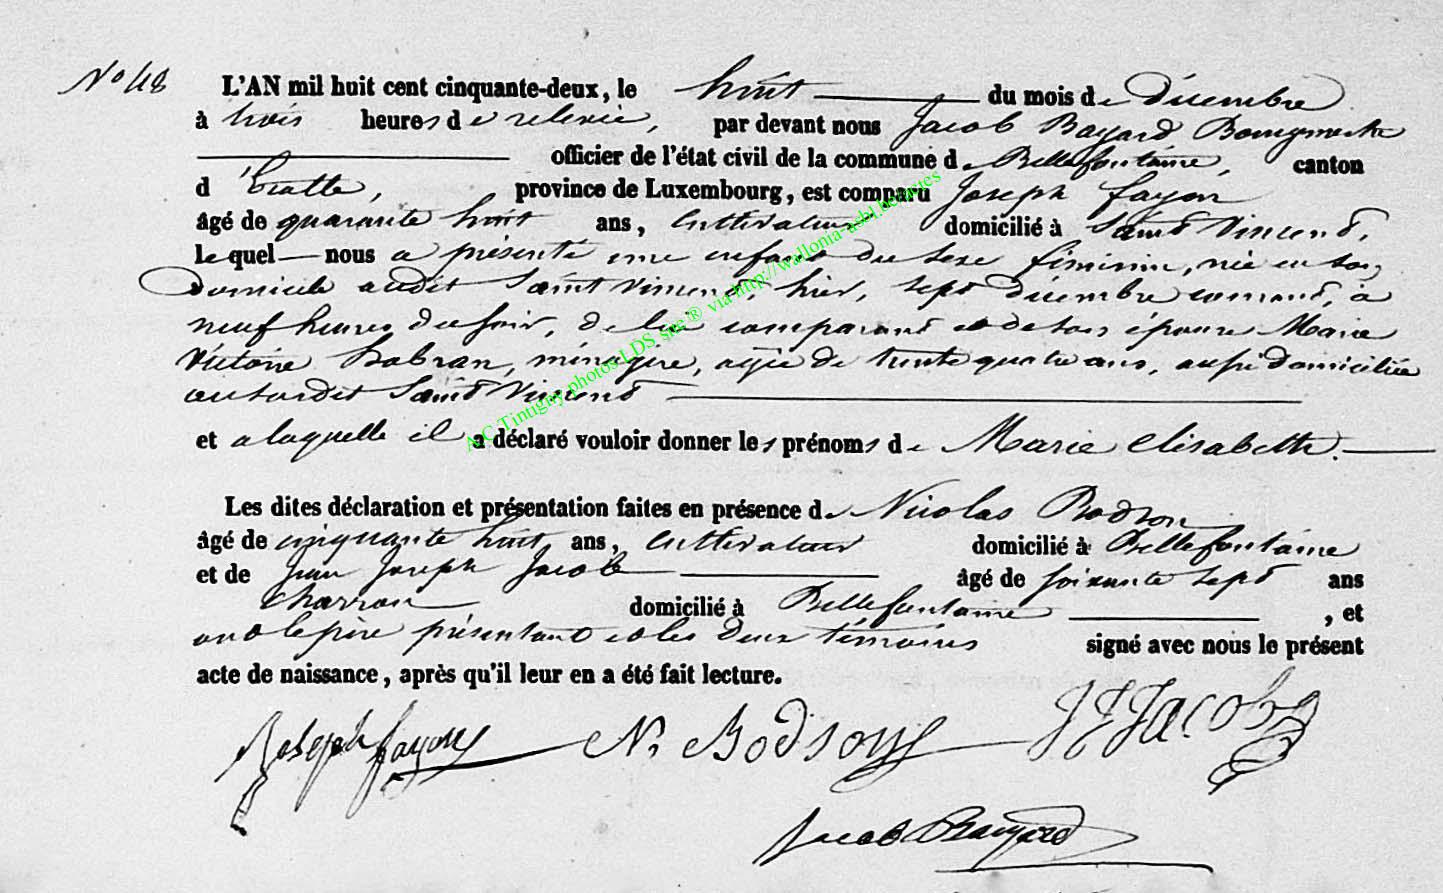 N° 48
L'AN mil huit cent cinquante-deux, le huit du mois de Décembre
à trois heures de relevée, par devant nous Jacob Bayard Bourgmestre
officier de l'état civil de la commune de Bellefontaine, canton
d'Etalle, province de Luxembourg, est comparu Joseph fayon
âgé de quarante huit ans, Cultivateur domicilié à Saint Vincent,
lequel nous a présenté une enfant du sexe féminin, née en son
domicile audit Saint Vincent, hier, sept Décembre courant, à
neuf heures du soir, de lui comparant et de son épouse Marie
Victoire habran, ménagère, agée de trente quatre ans, aussi domiciliée
au susdit Saint Vincent
et a laquelle il a déclaré vouloir donner les prénoms de Marie Elisabeth.
Les dites déclaration et présentation faites en présence de Nicolas Bodson
âgé de cinquante huit ans, Cultivateur domicilié à Bellefontaine
et de Jean Joseph Jacob âgé de soixante sept ans
Charron domicilié à Bellefontaine, et
ont le père présentant et les deux témoins signé avec nous le présent
acte de naissance, après qu'il leur en a été fait lecture.
Joseph fayon N. Bodson J J Jacob
Jacob Bayard
AC Tintigny photos LDS site ® via http://wallonia-asbl.be/actes